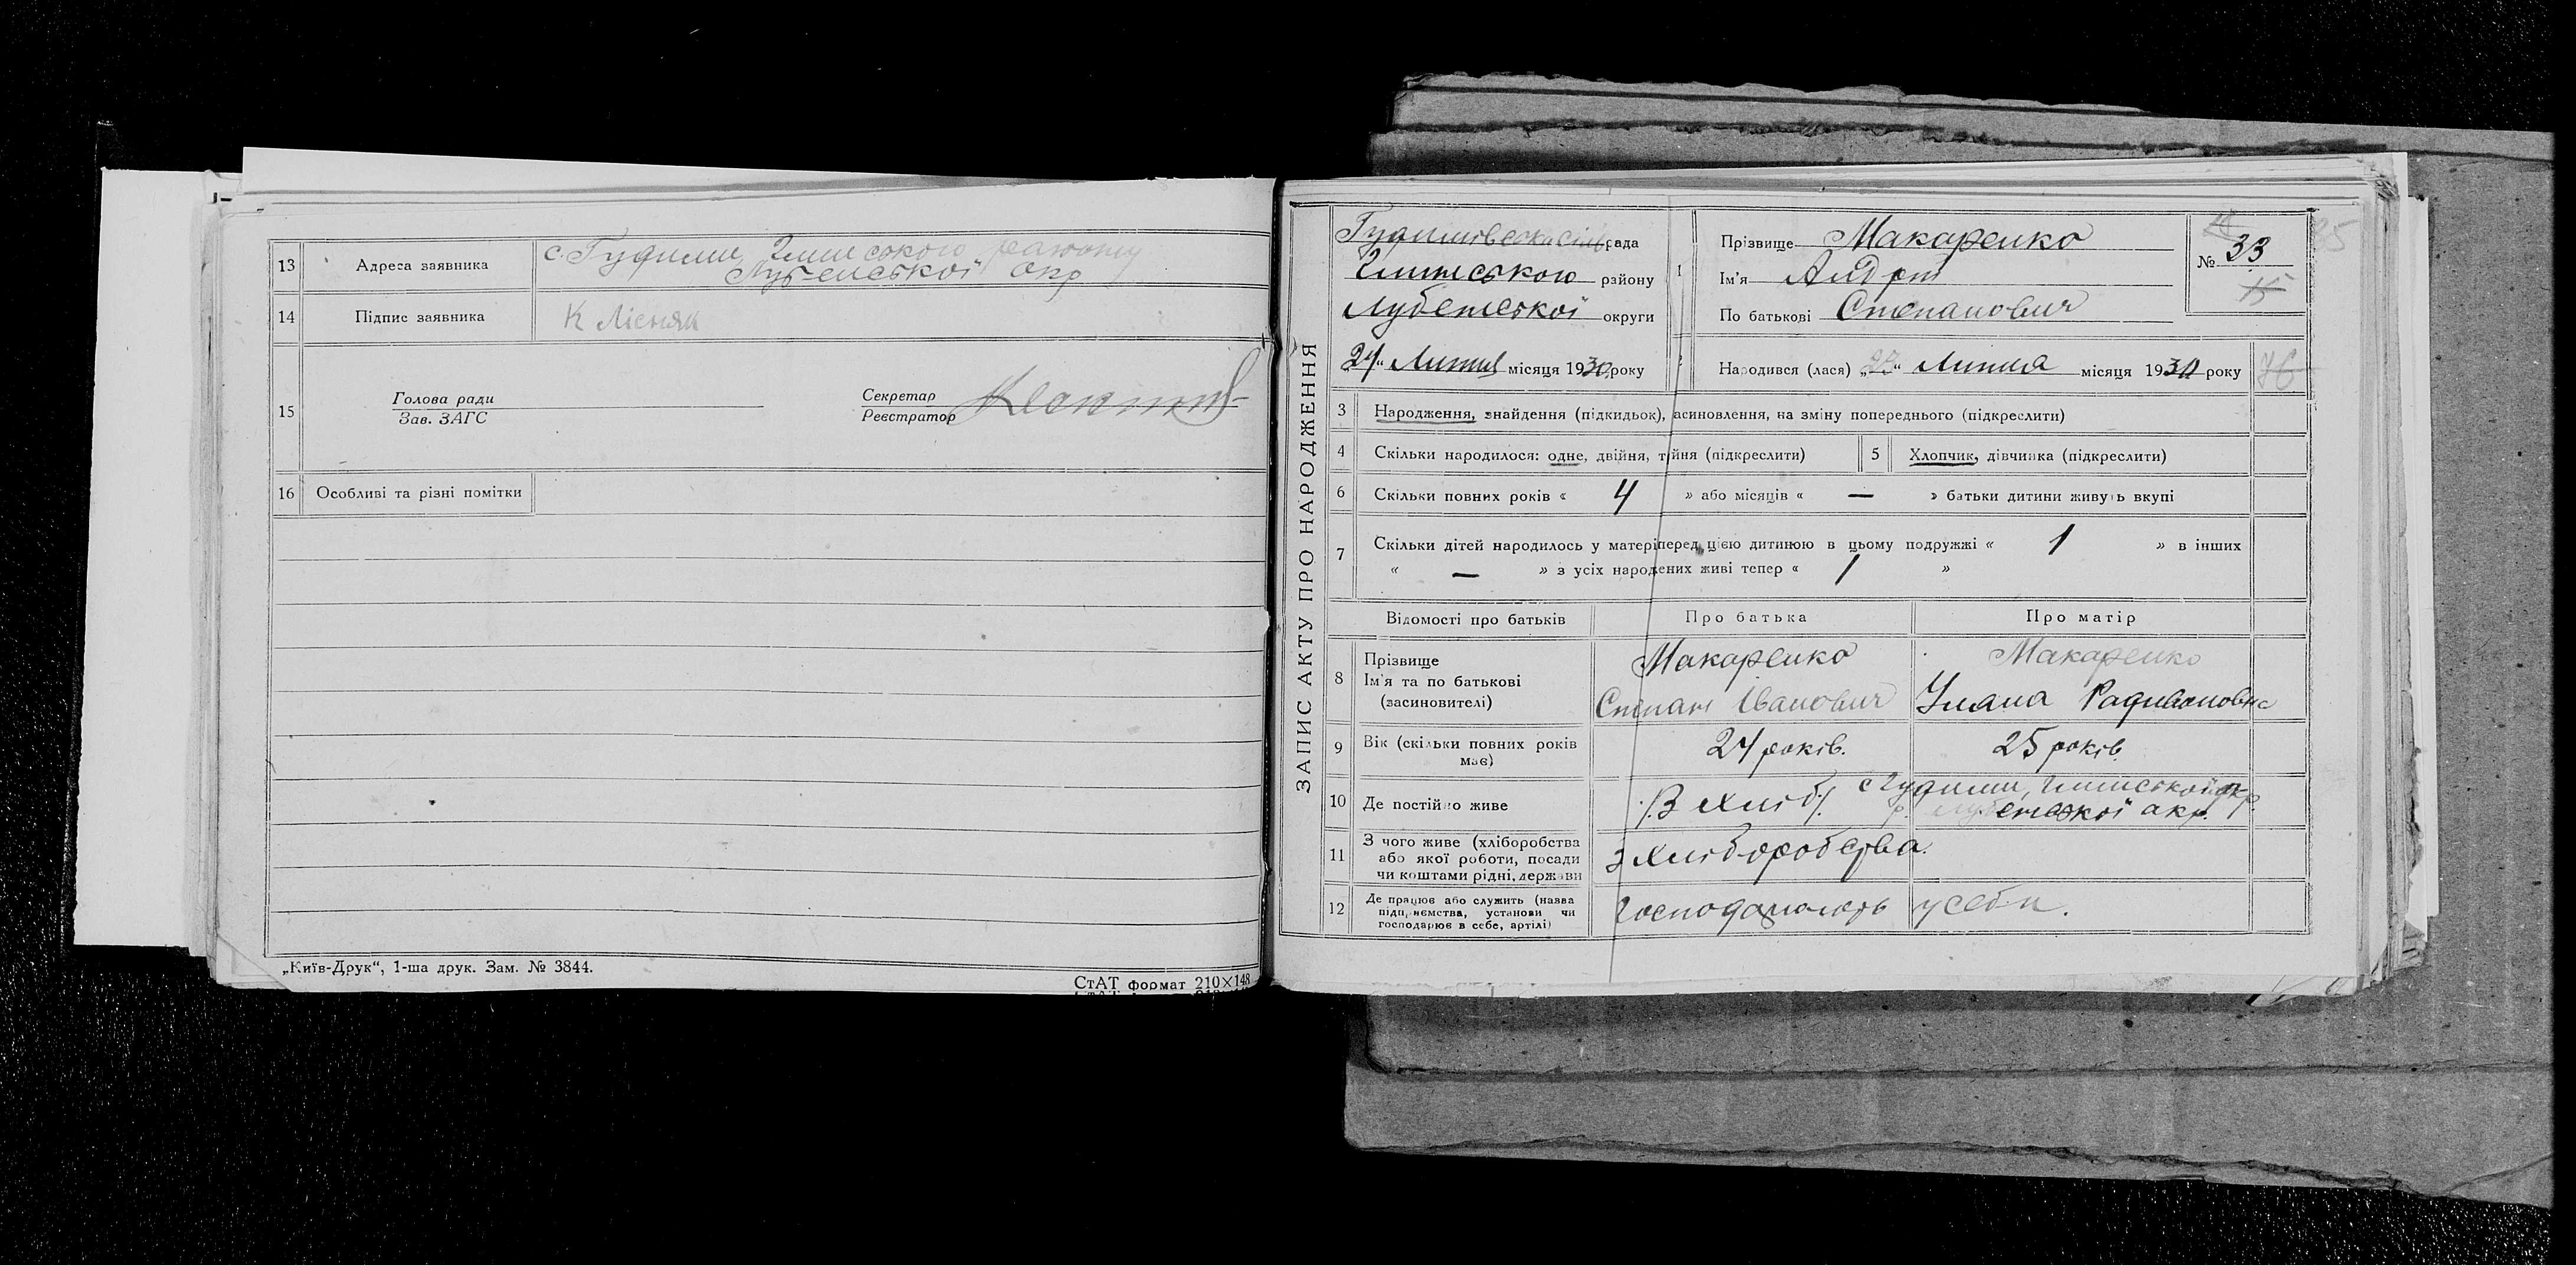 13 Адреса заявника с. Гудими, Чмиського району
Лубенської окр
14 Підпис заявника К Лісняк
15 Голова ради
Зав. ЗАГС
Секретар
Реєстратор
16 Особливі та різні помітки
„Київ-Друк“, 1-ша друк. Зам. № 3844.
СтАТ формат 210×148
ЗАПИС АКТУ ПРО НАРОДЖЕННЯ
рада
району
Лубенської округи
24“ Липня місяця 1930 року
1 Прізвище Макаренко
Ім'я Андрій
По батькові Степанович
№ 33
15
Народився (лася) „23“ Липня місяця 1930 року
3 Народження, знайдення (підкидьок), асиновлення, на зміну попереднього (підкреслити)
4 Скільки народилося: одне, двійня, трійня (підкреслити) 5 Хлопчик, дівчинка (підкреслити)
6 Скільки повних років « 4 » або місяців « — » батьки дитини живуть вкупі
7 Скільки дітей народилось у матері перед цією дитиною в цьому подружжі « 1 » в інших
« — » з усіх народжених живі тепер « 1 »
Відомості про батьків Про батька Про матір
8 Прізвище Макаренко Макаренко
Ім'я та по батькові
(засиновителі) Степан Іванович Уляна Радивоновна
9 Вік (скільки повних років
має) 24 років. 25 років.
10 Де постійно живе с Гудими,
Лубенської окр.
11 З чого живе (хліборобства
або якої роботи, посади
чи коштами рідні, держави з хліборобства.
12 Де працює або служить (назва
підприємства, установи чи
господарює в себе, артілі) Господарюють у себе.